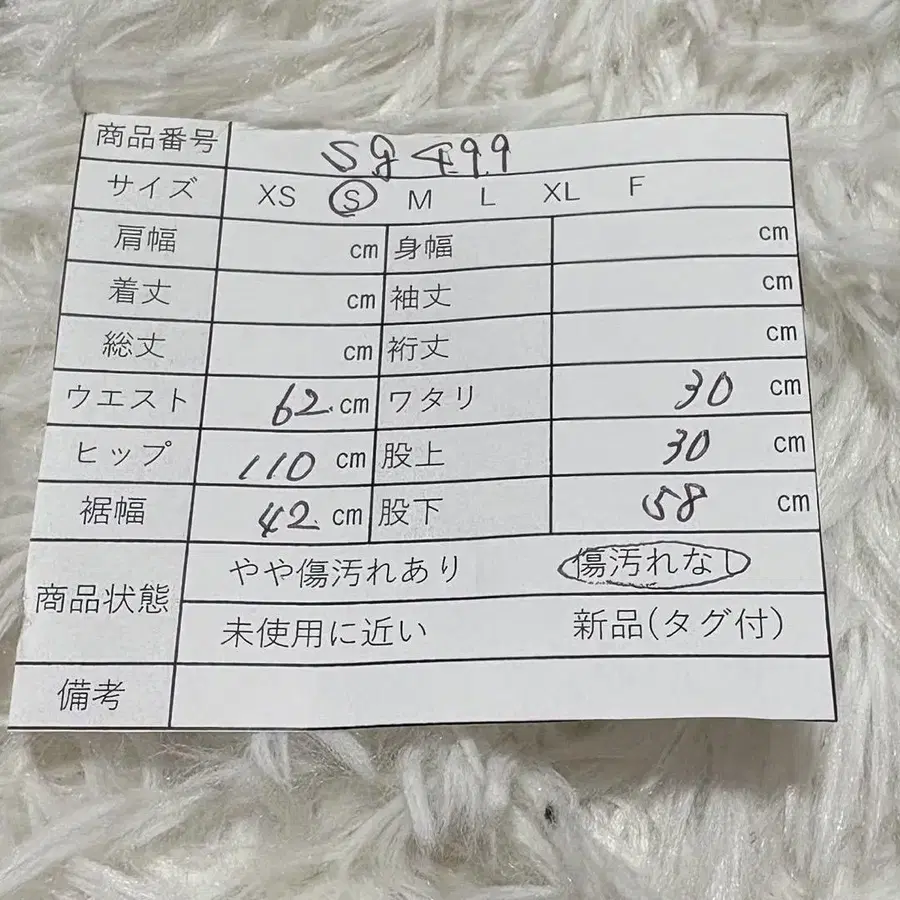 商品番号 sg499
サイズ XS S M L XL F
肩幅 cm 身幅 cm
着丈 cm 袖丈 cm
総丈 cm 裄丈 cm
ウエスト 62.cm ワタリ 30 cm
ヒップ 110 cm 股上 30 cm
裾幅 42.cm 股下 58 cm
商品状態 やや傷汚れあり 傷汚れなし
未使用に近い 新品(タグ付)
備考